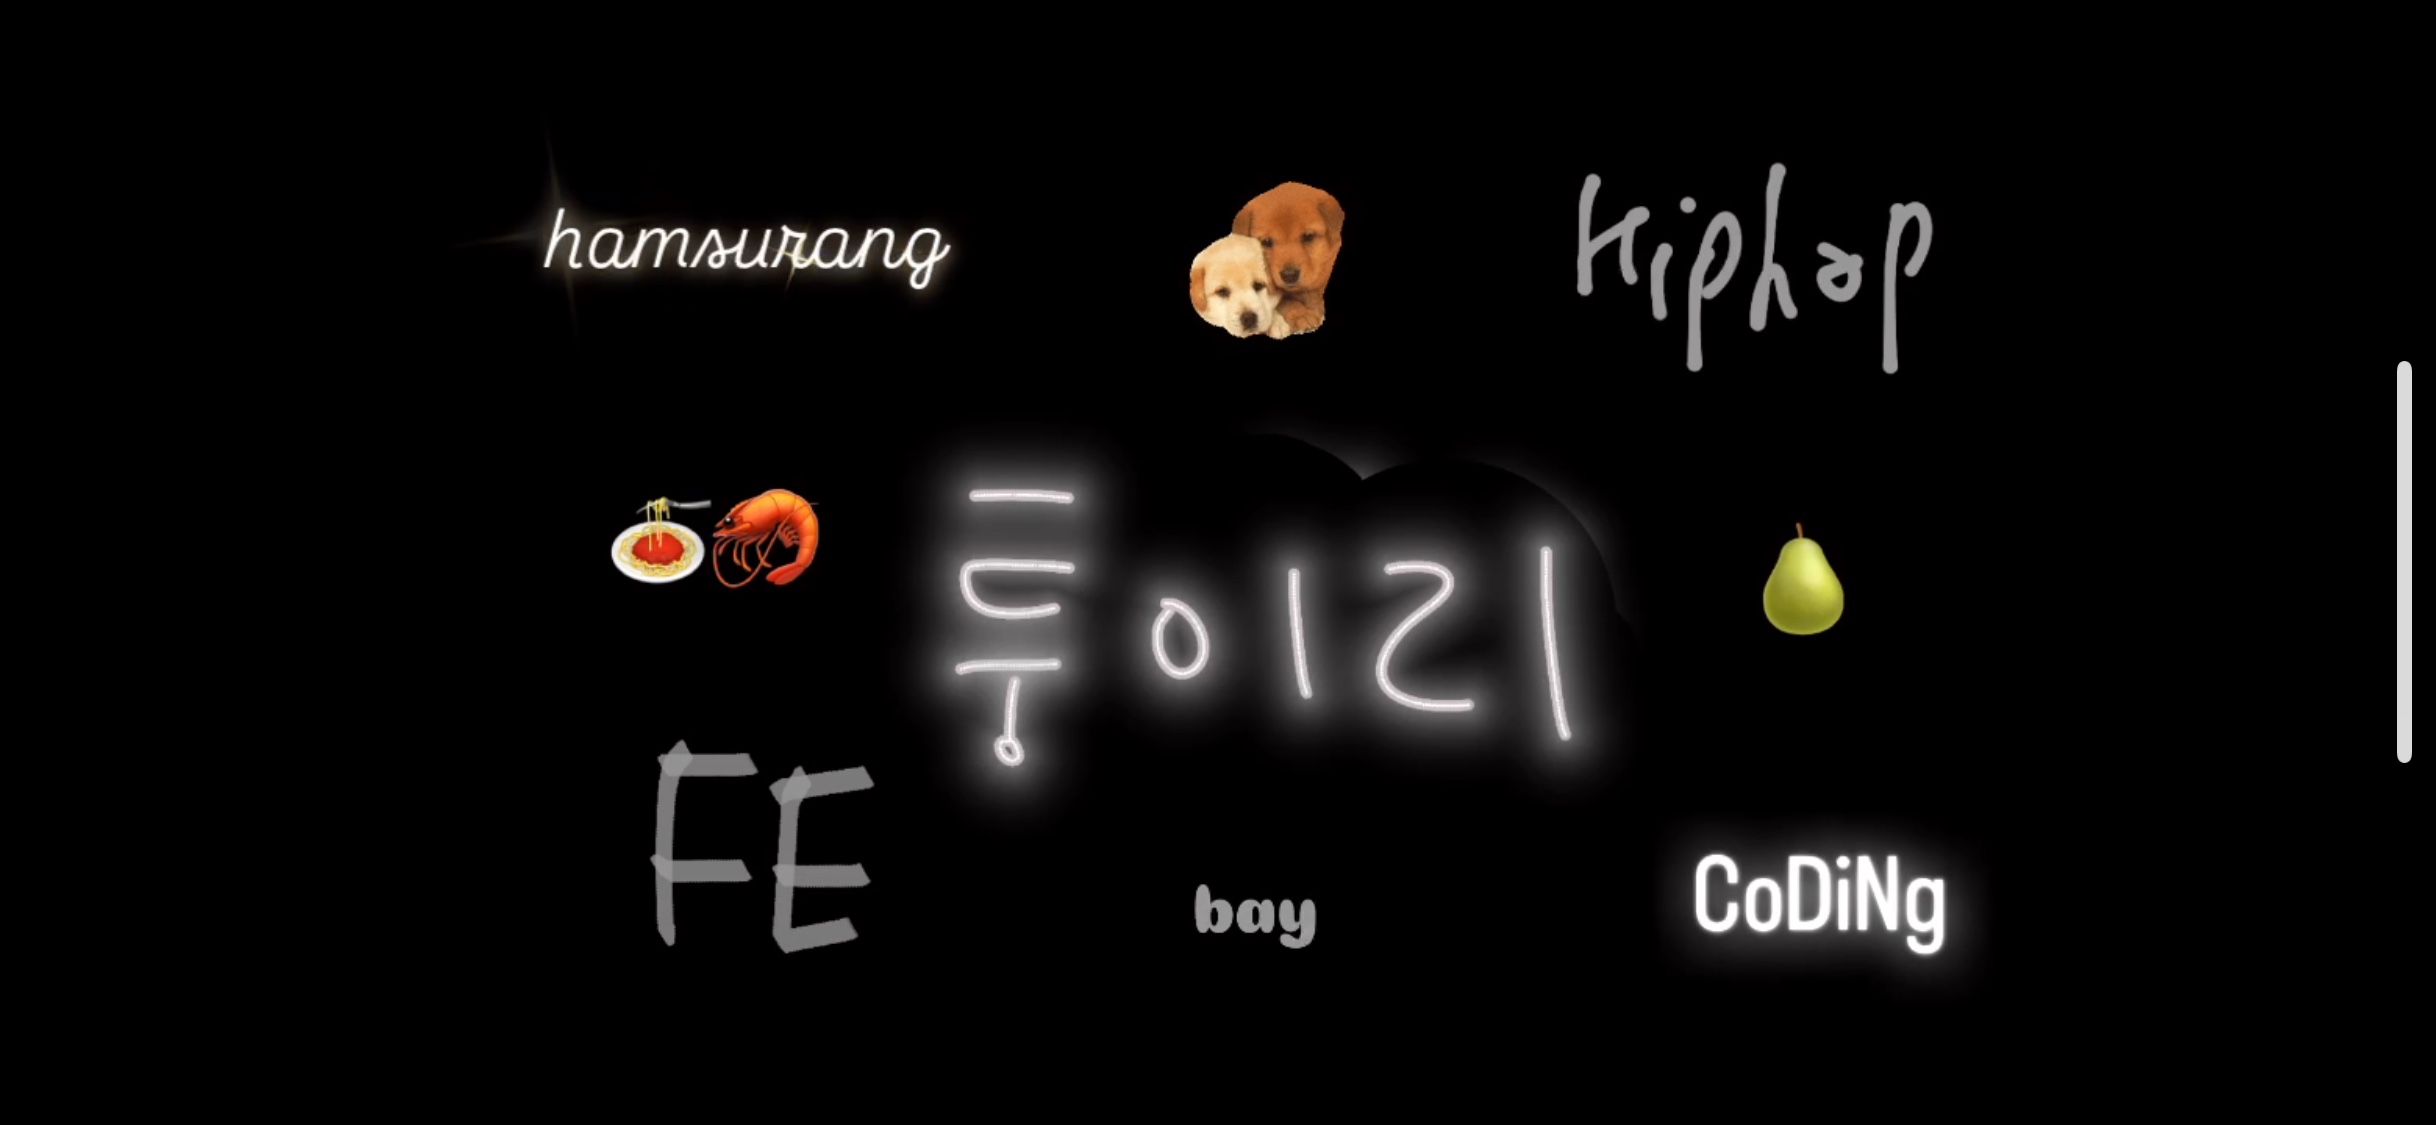 hamsurang
Hiphop
퉁이리
FE
bay
CoDiNg